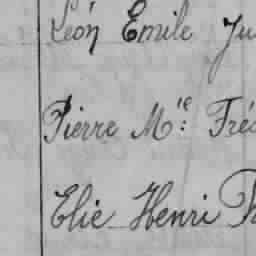 Léon Emile Ju
Pierre M.ie Fré
Elie Henri